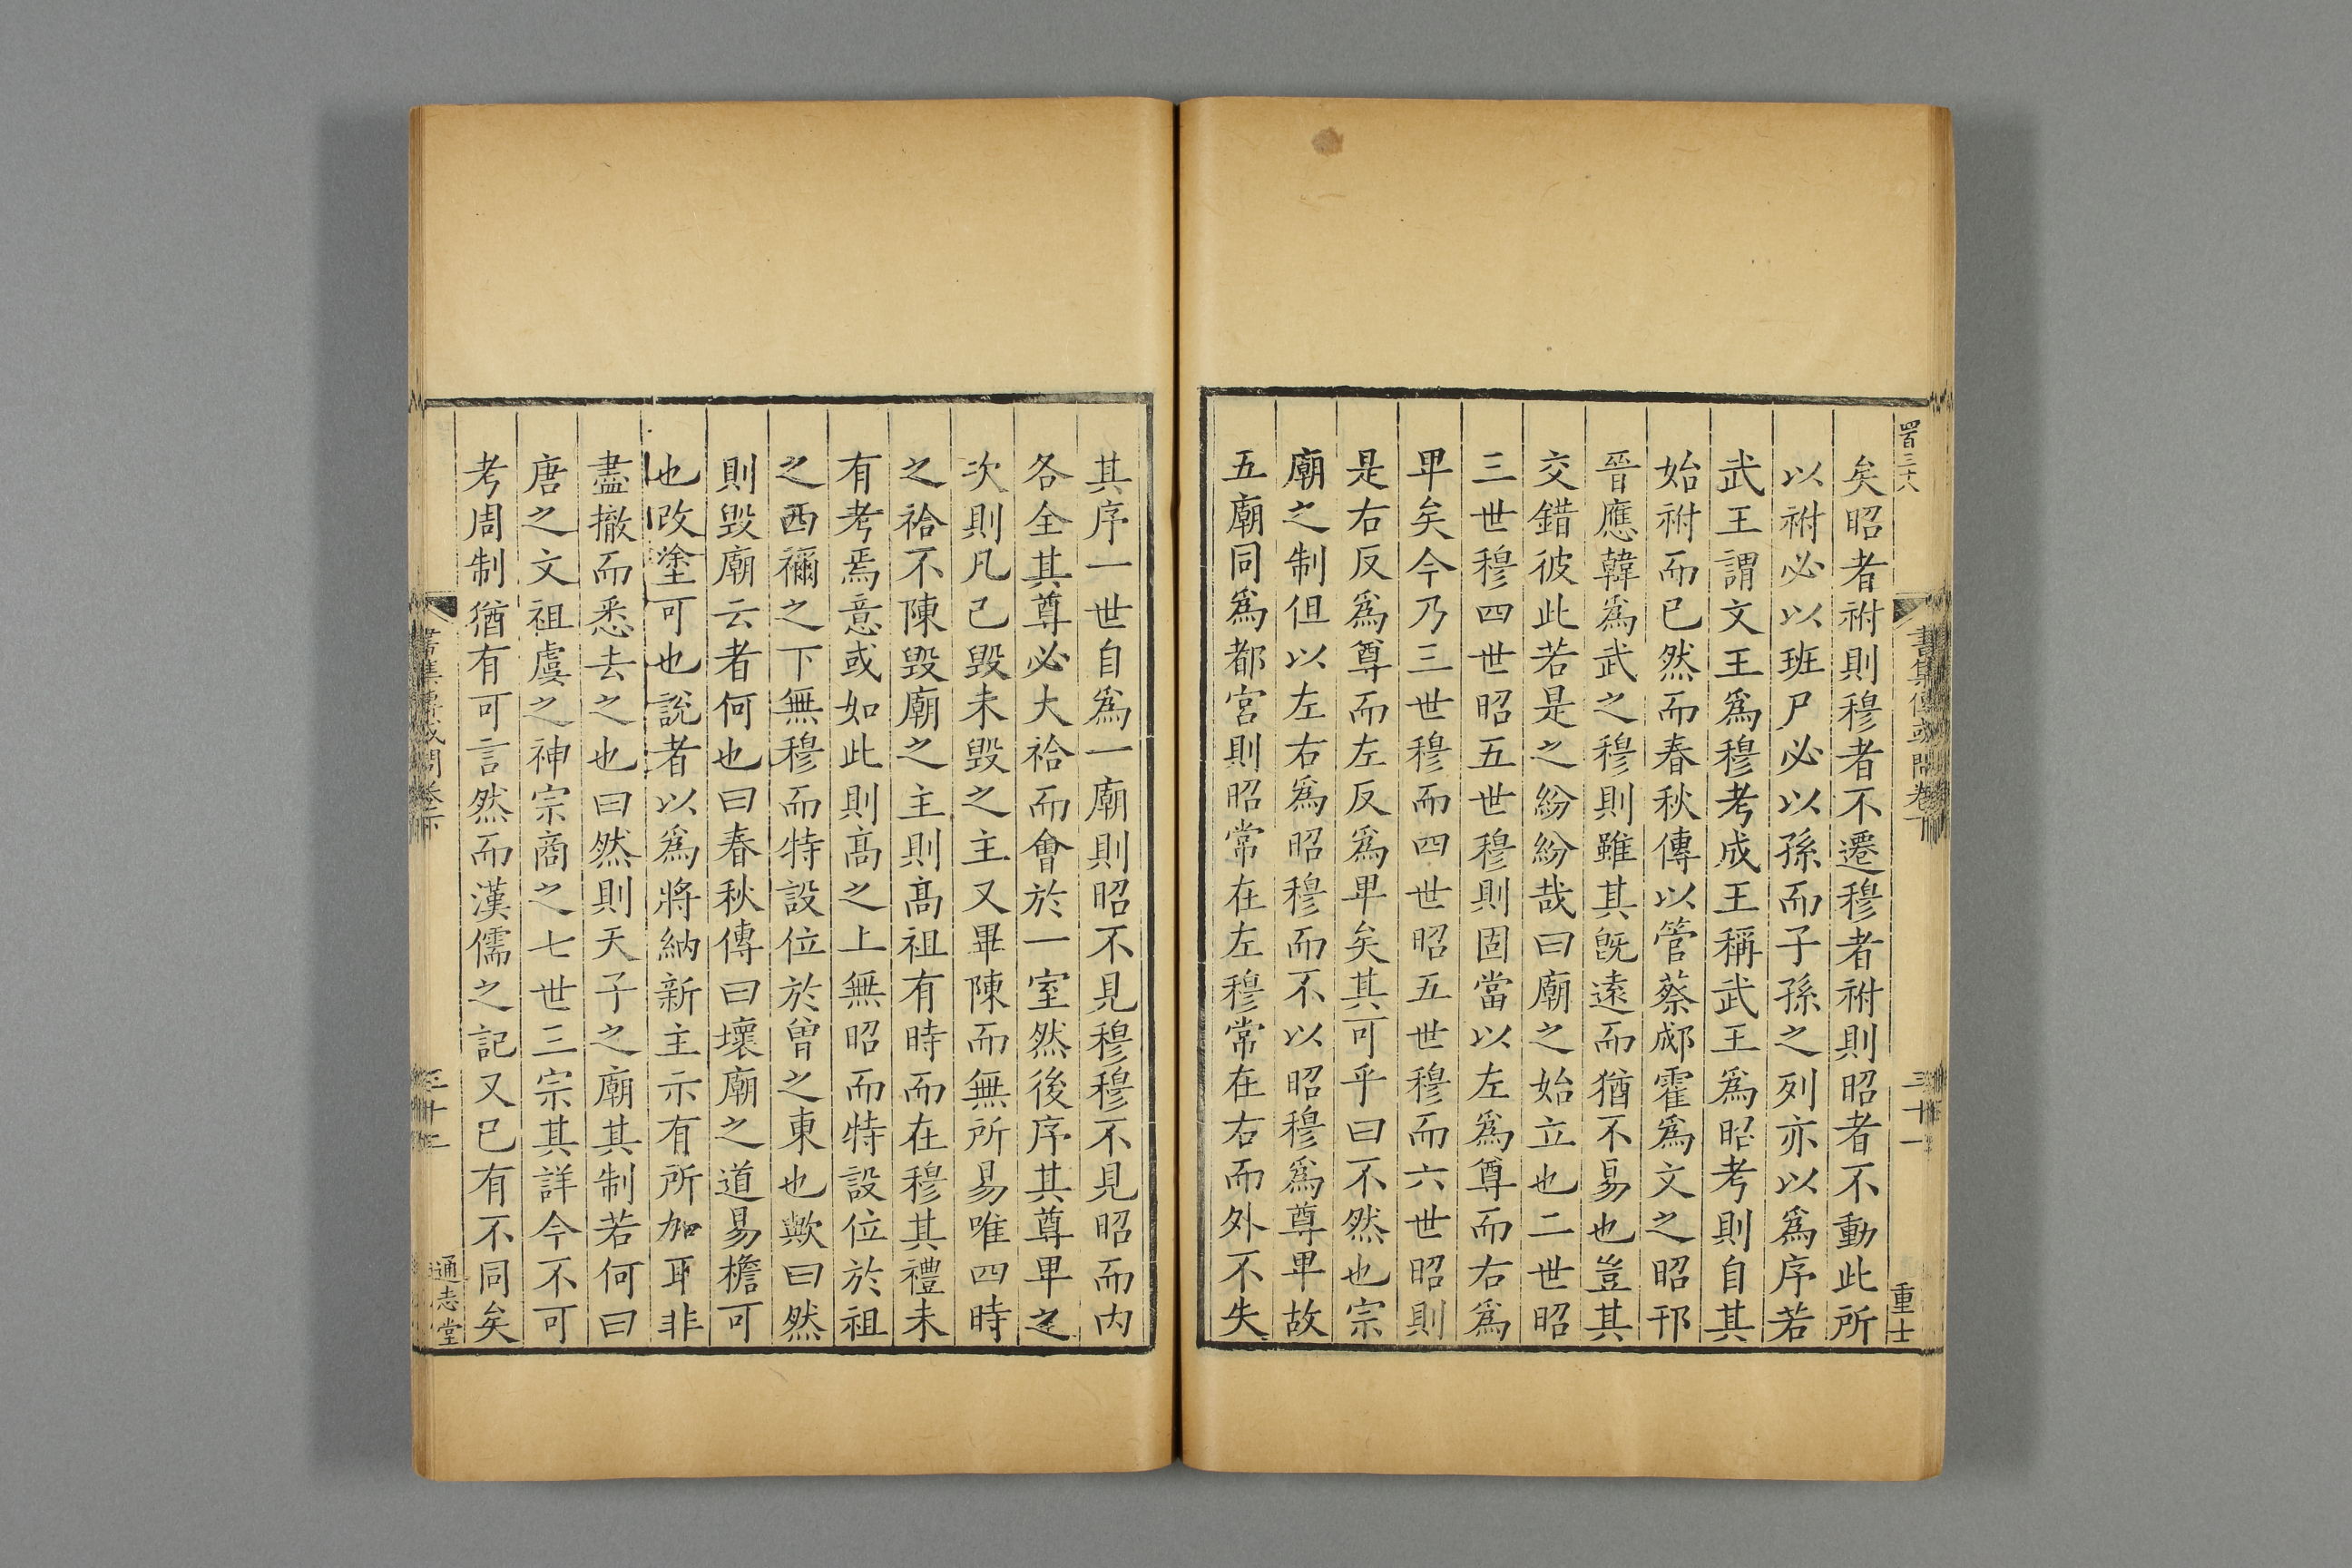 四百三十八
書集傳或問卷下
三十一
重士
矣昭者祔則穆者不遷穆者祔則昭者不動此所
以祔必以班尸必以孫而子孫之列亦以爲序若
武王謂文王爲穆考成王稱武王爲昭考則自其
始祔而已然而春秋傳以管蔡郕霍爲文之昭邘
晉應韓爲武之穆則雖其旣遠而猶不易也豈其
交錯彼此若是之紛紛哉曰廟之始立也二世昭
三世穆四世昭五世穆則固當以左爲尊而右爲
卑矣今乃三世穆而四世昭五世穆而六世昭則
是右反爲尊而左反爲卑矣其可乎曰不然也宗
廟之制但以左右爲昭穆而不以昭穆爲尊卑故
五廟同爲都宮則昭常在左穆常在右而外不失
其序一世自爲一廟則昭不見穆穆不見昭而内
各全其尊必大祫而會於一室然後序其尊卑之
次則凡已毀未毀之主又畢陳而無所易唯四時
之祫不陳毀廟之主則髙祖有時而在穆其禮未
有考焉意或如此則髙之上無昭而特設位於祖
之西禰之下無穆而特設位於曾之東也歟曰然
則毀廟云者何也曰春秋傳曰壞廟之道易檐可
也改塗可也說者以爲將納新主示有所加耳非
盡撤而悉去之也曰然則天子之廟其制若何曰
唐之文祖虞之神宗商之七世三宗其詳今不可
考周制猶有可言然而漢儒之記又已有不同矣
書集傳或問卷下
三十二
通志堂